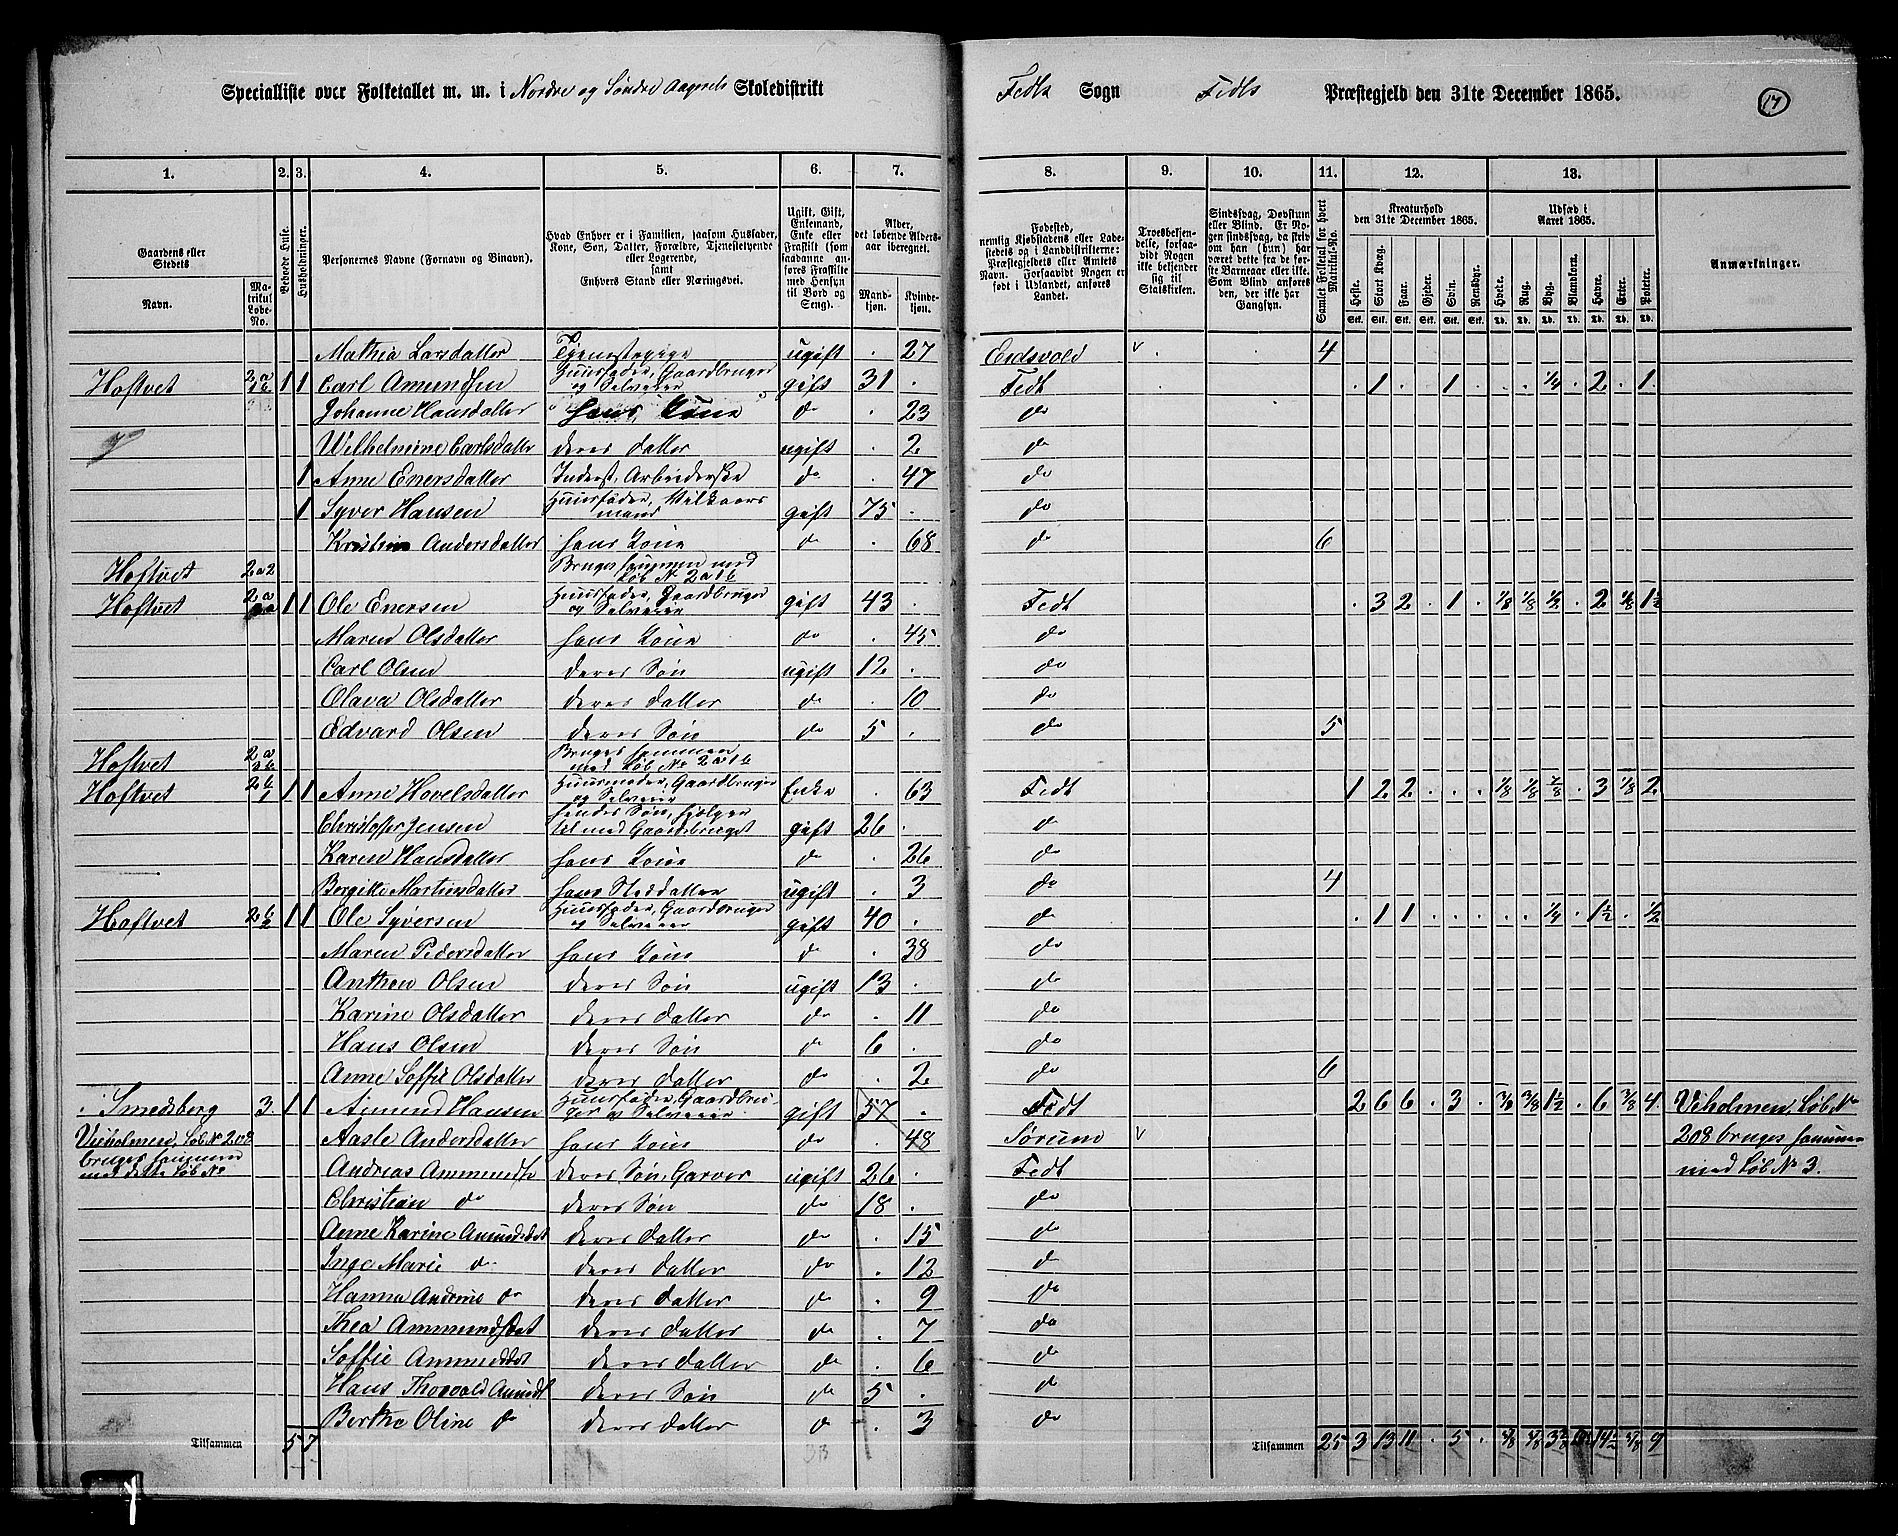 Specialliste over Folketallet m. m. i Nordre og Søndre Aagrrels Skoledistrikt Fedts Sogn Fedts Præstegjeld den 31te December 1865. 17
1. 2. 3. 4. 5. 6. 7. 8. 9. 10. 11. 12. 13.
Gaardens eller Stedets
Navn. Matrikul Løbe-No.
Beboede Huse.
Husholdninger.
Personernes Navne (Fornavn og Binavn).
Hvad Enhver er i Familien, saasom Husfader, Kone, Søn, Datter, Forældre, Tjenestetyende eller Logerende, samt Enhvers Stand eller Næringsvei.
Ugift, Gift, Enkemand, Enke eller Fraskilt (som saadanne anføres Fraskilte med Hensyn til Bord og Seng).
Alder, det løbende Alders-aar iberegnet.
Mandkjøn. Kvindekjøn.
Fødested, nemlig Kjøbstadens eller Ladestedets og i Landdistrikterne: Præstegjeldets eller Amtets Navn. Forsaavidt Nogen er født i Udlandet, anføres Landet.
Troesbekjendelse, forsaavidt Nogen ikke bekjender sig til Statskirken.
Sindssvag, Døvstum eller Blind. Er Nogen sindssvag, da skrives om han (hun) har været dette fra de første Barneaar eller ikke. Som Blind anføres den, der ikke har Gangsyn.
Samlet Folketal for hvert Matrikul-No.
Kreaturhold den 31te December 1865.
Heste. Stort Kvæg. Faar. Gjeder. Svin. Rensdyr.
Udsæd i Aaret 1865.
Hvede. Rug. Byg. Blandkorn. Havre. Erter. Poteter.
Anmærkninger.
Mathia Larsdatter Tjenestepige ugift . 27 Eidsvold 4
Hoftvet 2a 1b 1 1 Carl Amundsen Huusfader, Gaardbruger og Selveier gift 31 . Fedt . 1 . . 1 . . . 1/4 . 2 . 1
Johanne Hansdatter hans Kone do . 23 do
Wilhelmine Carlsdatter deres datter ugift . 2 do
1 Anne Enersdatter Inderst, Arbeiderske do . 47 do
1 Syver Hansen Huusfader, Vilkaarsmand gift 75 . do
Andersdatter hans Kone do . 68 do 6
Hoftvet 2a2 Bruges sammen med Løb N 2a1b
Hoftvet 2a 1 1 Ole Enersen Huusfader, Gaardbruger og Selveier gift 43 . Fedt . 3 2 . 1 . 1/8 1/8 1/2 . 2 1/8 1 1/2
Maren Olsdatter hans Kone do . 45 do
Carl Olsen deres Søn ugift 12 . do
Olava Olsdatter deres datter do . 10 do
Edvard Olsen deres Søn do 5 . do 5
Hoftvet 2a 3b Bruges sammen med Løb No 2a1b
Hoftvet 2b 1 1 1 Anne Hovelsdatter Huusmoder, Gaardbruger og Selveier Enke . 63 Fedt 1 2 2 . . . 1/8 1/8 7/8 . 3 1/8 2
Christoffer Jensen hendes Søn, hjælper til med Gaardsbruget gift 26 . do
Karen Hansdatter hans Kone do . 26 do
Bergitte Martinsdatter hans Steddatter ugift . 3 do 4
Hoftvet 2b 2 1 1 Ole Syversen Huusfader, Gaardbruger og Selveier gift 40 . do . 1 1 . . . . . 1/4 . 1 1/2 . 1/2
Maren Pedersdatter hans Kone do . 38 do
Anthon Olsen deres Søn ugift 13 . do
Karine Olsdatter deres datter do . 11 do
Hans Olsen deres Søn do 6 . do
Anne Soffie Olsdatter deres datter do . 2 do 6
Smedsberg 3. 1 1 Amund Hansen Huusfader, Gaardbruger og Selveier gift 57 . Fedt 2 6 6 . 3 . 3/8 1 1/2 . 6 3/8 4 Viholmen, Løb No
Vieholmen, Løb No 208 Aasle Andersdatter hans Kone do . 48 Sørum 208 bruges sammen
bruges sammen med dette Løb No Andreas Ammundse deres Søn, Garver ugift 26 . Fedt med Løb No 3.
Christian do deres Søn do 18 . do
Anne Karine Amundsdat deres datter do . 15 do
Inge Marie do deres datter do . 12 do
Hanna Andrine do deres datter do . 9 do
Thea Ammundsdat deres datter do . 7 do
Soffie Ammundsdat deres datter do . 6 do
Hans Thorvald Amundse deres Søn do 5 . do
Berthe Oline do deres datter do . 3 do
Tilsammen 5 7 Tilsammen 25 3 13 11 . 5 . 14 1/2 9